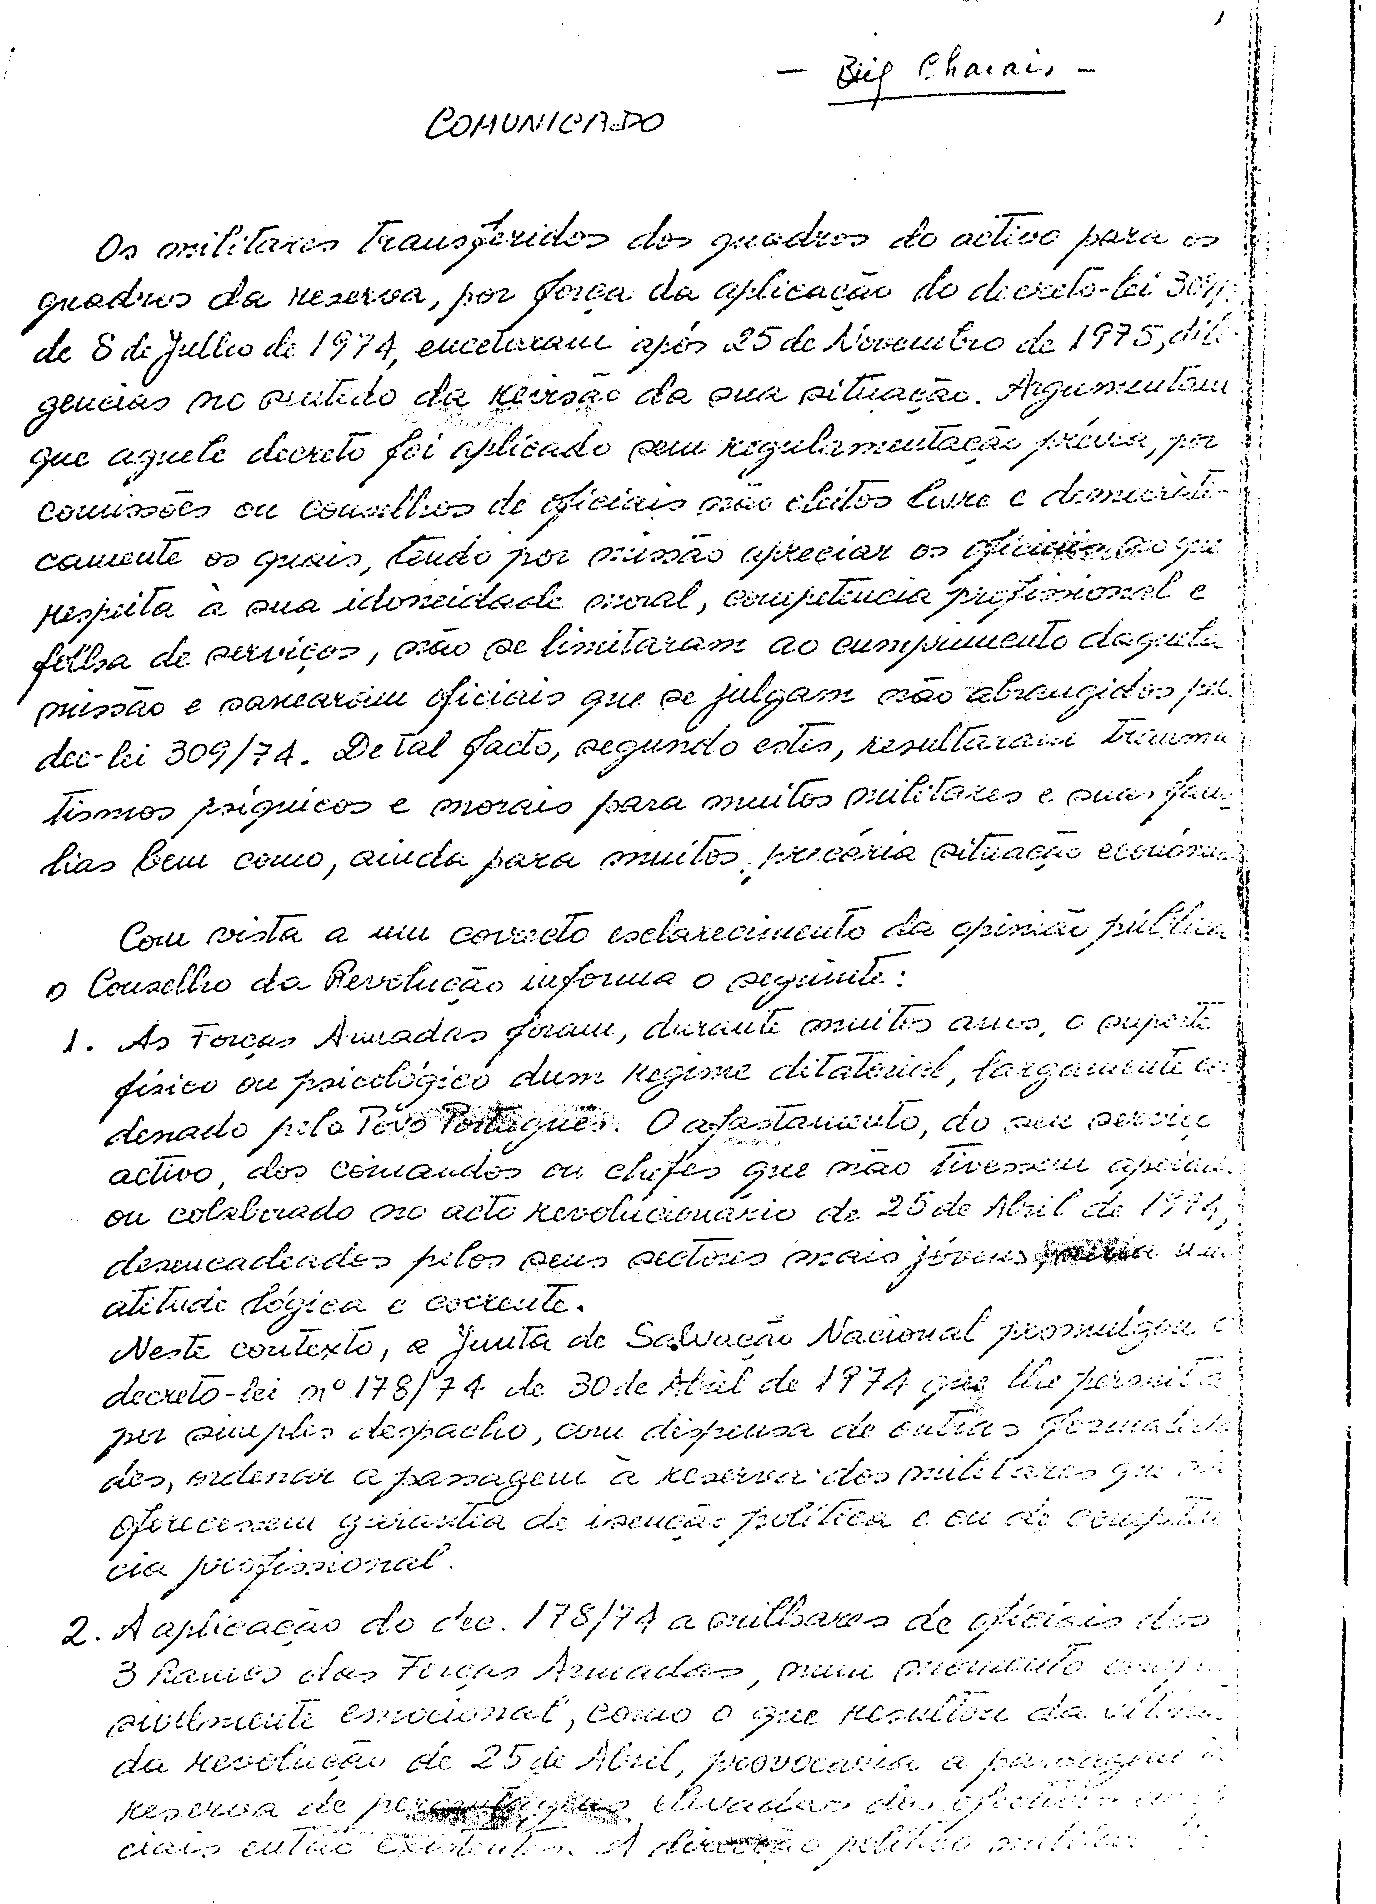 1
- Brig Charais -
COMUNICADO
Os militares transferidos dos quadros do activo para os
quadros da reserva, por força da aplicação do decreto-lei 309/
de 8 de Julho de 1974, encetaram após 25 de Novembro de 1975, dili-
gencias no sentido da revisão da sua situação. Argumentam
que aquele decreto foi aplicado sem regulamentação prévia, por
comissões ou conselhos de oficiais não eleitos livre e democrati-
camente os quais, tendo por missão apreciar os oficiais no que
respeita à sua idoneidade moral, competência profissional e
folha de serviços, não se limitaram ao cumprimento daquela
missão e sanearam oficiais que se julgam não abrangidos pel
dec-lei 309/74. De tal facto, segundo estes, resultaram trauma
tismos psíquicos e morais para muitos militares e suas famí
lias bem como, ainda para muitos, precária situação económi
Com vista a um correcto esclarecimento da opinião pública
o Conselho da Revolução informa o seguinte:
1. As Forças Armadas foram, durante muitos anos, o suporte
físico ou psicológico dum regime ditatorial, largamente con
denado pelo Povo Português. O afastamento, do seu serviço
activo, dos comandos ou chefes que não tivessem apoiad
ou colaborado no acto revolucionário de 25 de Abril de 1974,
desencadeados pelos seus sectores mais jóvens, seria um
atitude lógica e coerente.
Neste contexto, a Junta de Salvação Nacional promulgou o
decreto-lei nº 178/74 de 30 de Abril de 1974 que lhe permitia
por simples despacho, com dispensa de outras formalida
des, ordenar a passagem à reserva dos militares que nã
oferecessem garantia de isenção política e ou de competên
cia profissional.
2. A aplicação do dec. 178/74 a milhares de oficiais dos
3 Ramos das Forças Armadas, num momento
emocional, como o que resultou da vitória
da revolução de 25 de Abril, provocaria a passagem à
reserva de percentagens elevadas dos efectivos
ciais então existentes. A direcção político militar